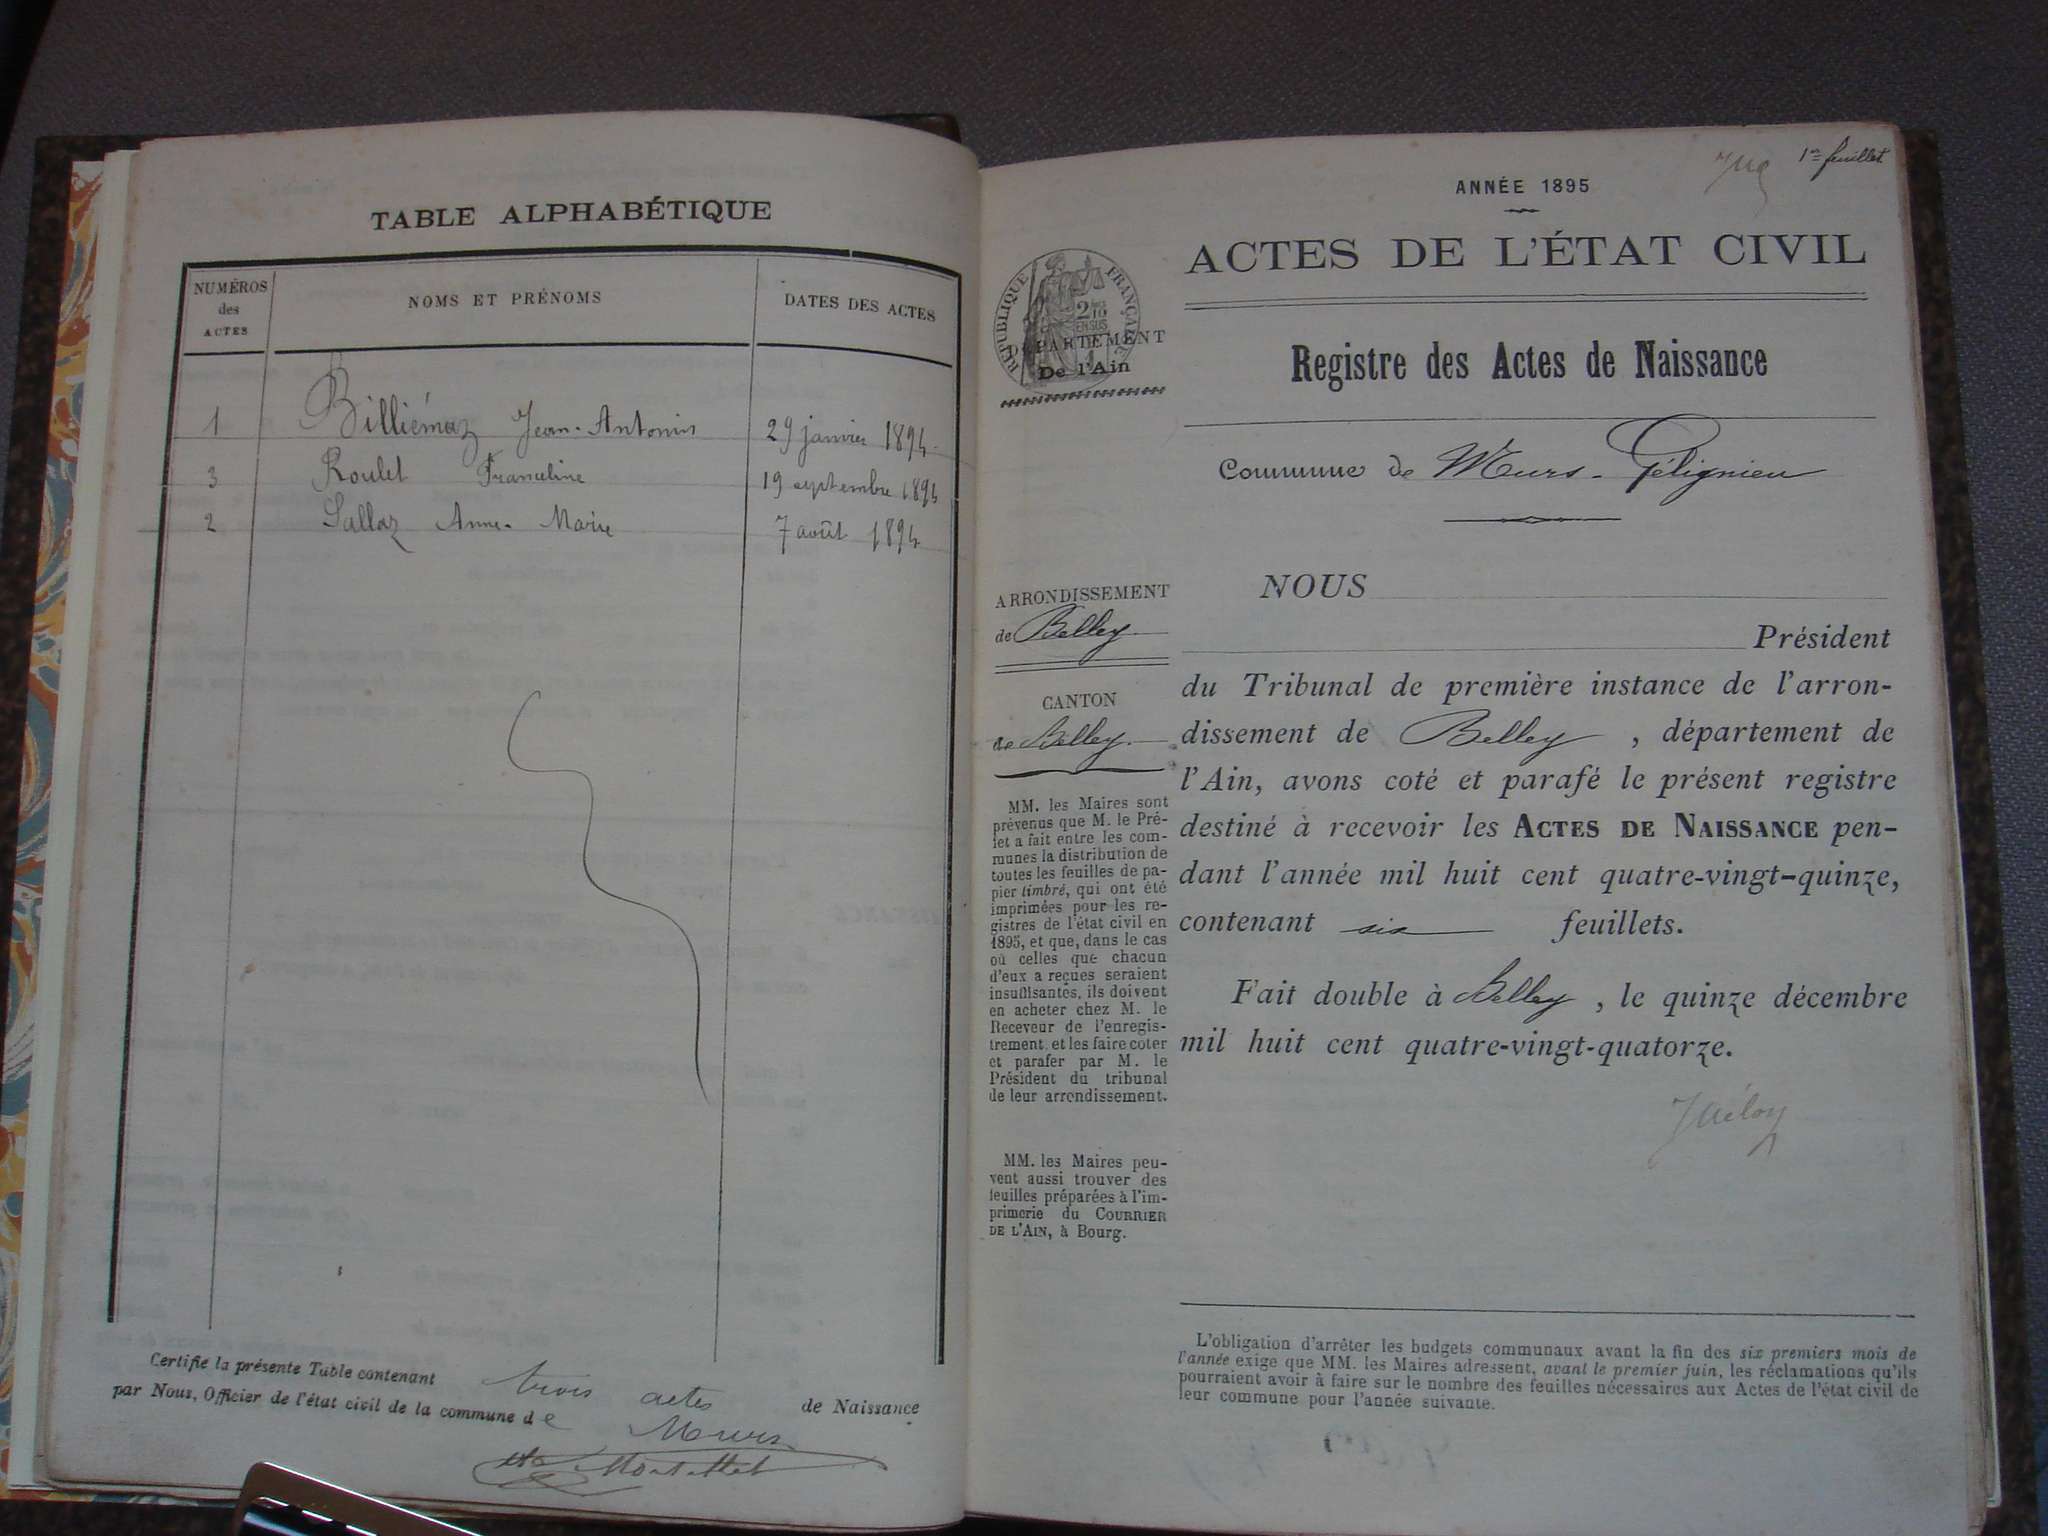 TABLE ALPHABÉTIQUE
NUMÉROS
des
ACTES
NOMS ET PRÉNOMS
DATES DES ACTES
1 Billiémaz Jean-Antonin 29 janvier 1894
3 Roulet Franceline 19 septembre 1894
2 Sallaz Anne-Marie 7 août 1894
Certifie la présente Table contenant trois actes de Naissance
par Nous, Officier de l'état civil de la commune de Murs
1er feuillet
ANNÉE 1895
ACTES DE L'ÉTAT CIVIL
RÉPUBLIQUE FRANÇAISE
2/10
EN SUS
DÉPARTEMENT
De l'Ain
Registre des Actes de Naissance
Commune de Murs-Gélignieu
ARRONDISSEMENT
de Belley
CANTON
de Belley.
MM. les Maires sont
prévenus que M. le Pré-
fet a fait entre les com-
munes la distribution de
toutes les feuilles de pa-
pier timbré, qui ont été
imprimées pour les re-
gistres de l'état civil en
1895, et que, dans le cas
où celles que chacun
d'eux a reçues seraient
insuffisantes, ils doivent
en acheter chez M. le
Receveur de l'enregis-
trement, et les faire coter
et parafer par M. le
Président du tribunal
de leur arrondissement.
MM. les Maires peu-
vent aussi trouver des
feuilles préparées à l'im-
primerie du COURRIER
DE L'AIN, à Bourg.
NOUS
Président
du Tribunal de première instance de l'arron-
dissement de Belley, département de
l'Ain, avons coté et parafé le présent registre
destiné à recevoir les ACTES DE NAISSANCE pen-
dant l'année mil huit cent quatre-vingt-quinze,
contenant six feuillets.
Fait double à Belley, le quinze décembre
mil huit cent quatre-vingt-quatorze.
L'obligation d'arrêter les budgets communaux avant la fin des six premiers mois de
l'année exige que MM. les Maires adressent, avant le premier juin, les réclamations qu'ils
pourraient avoir à faire sur le nombre des feuilles nécessaires aux Actes de l'état civil de
leur commune pour l'année suivante.